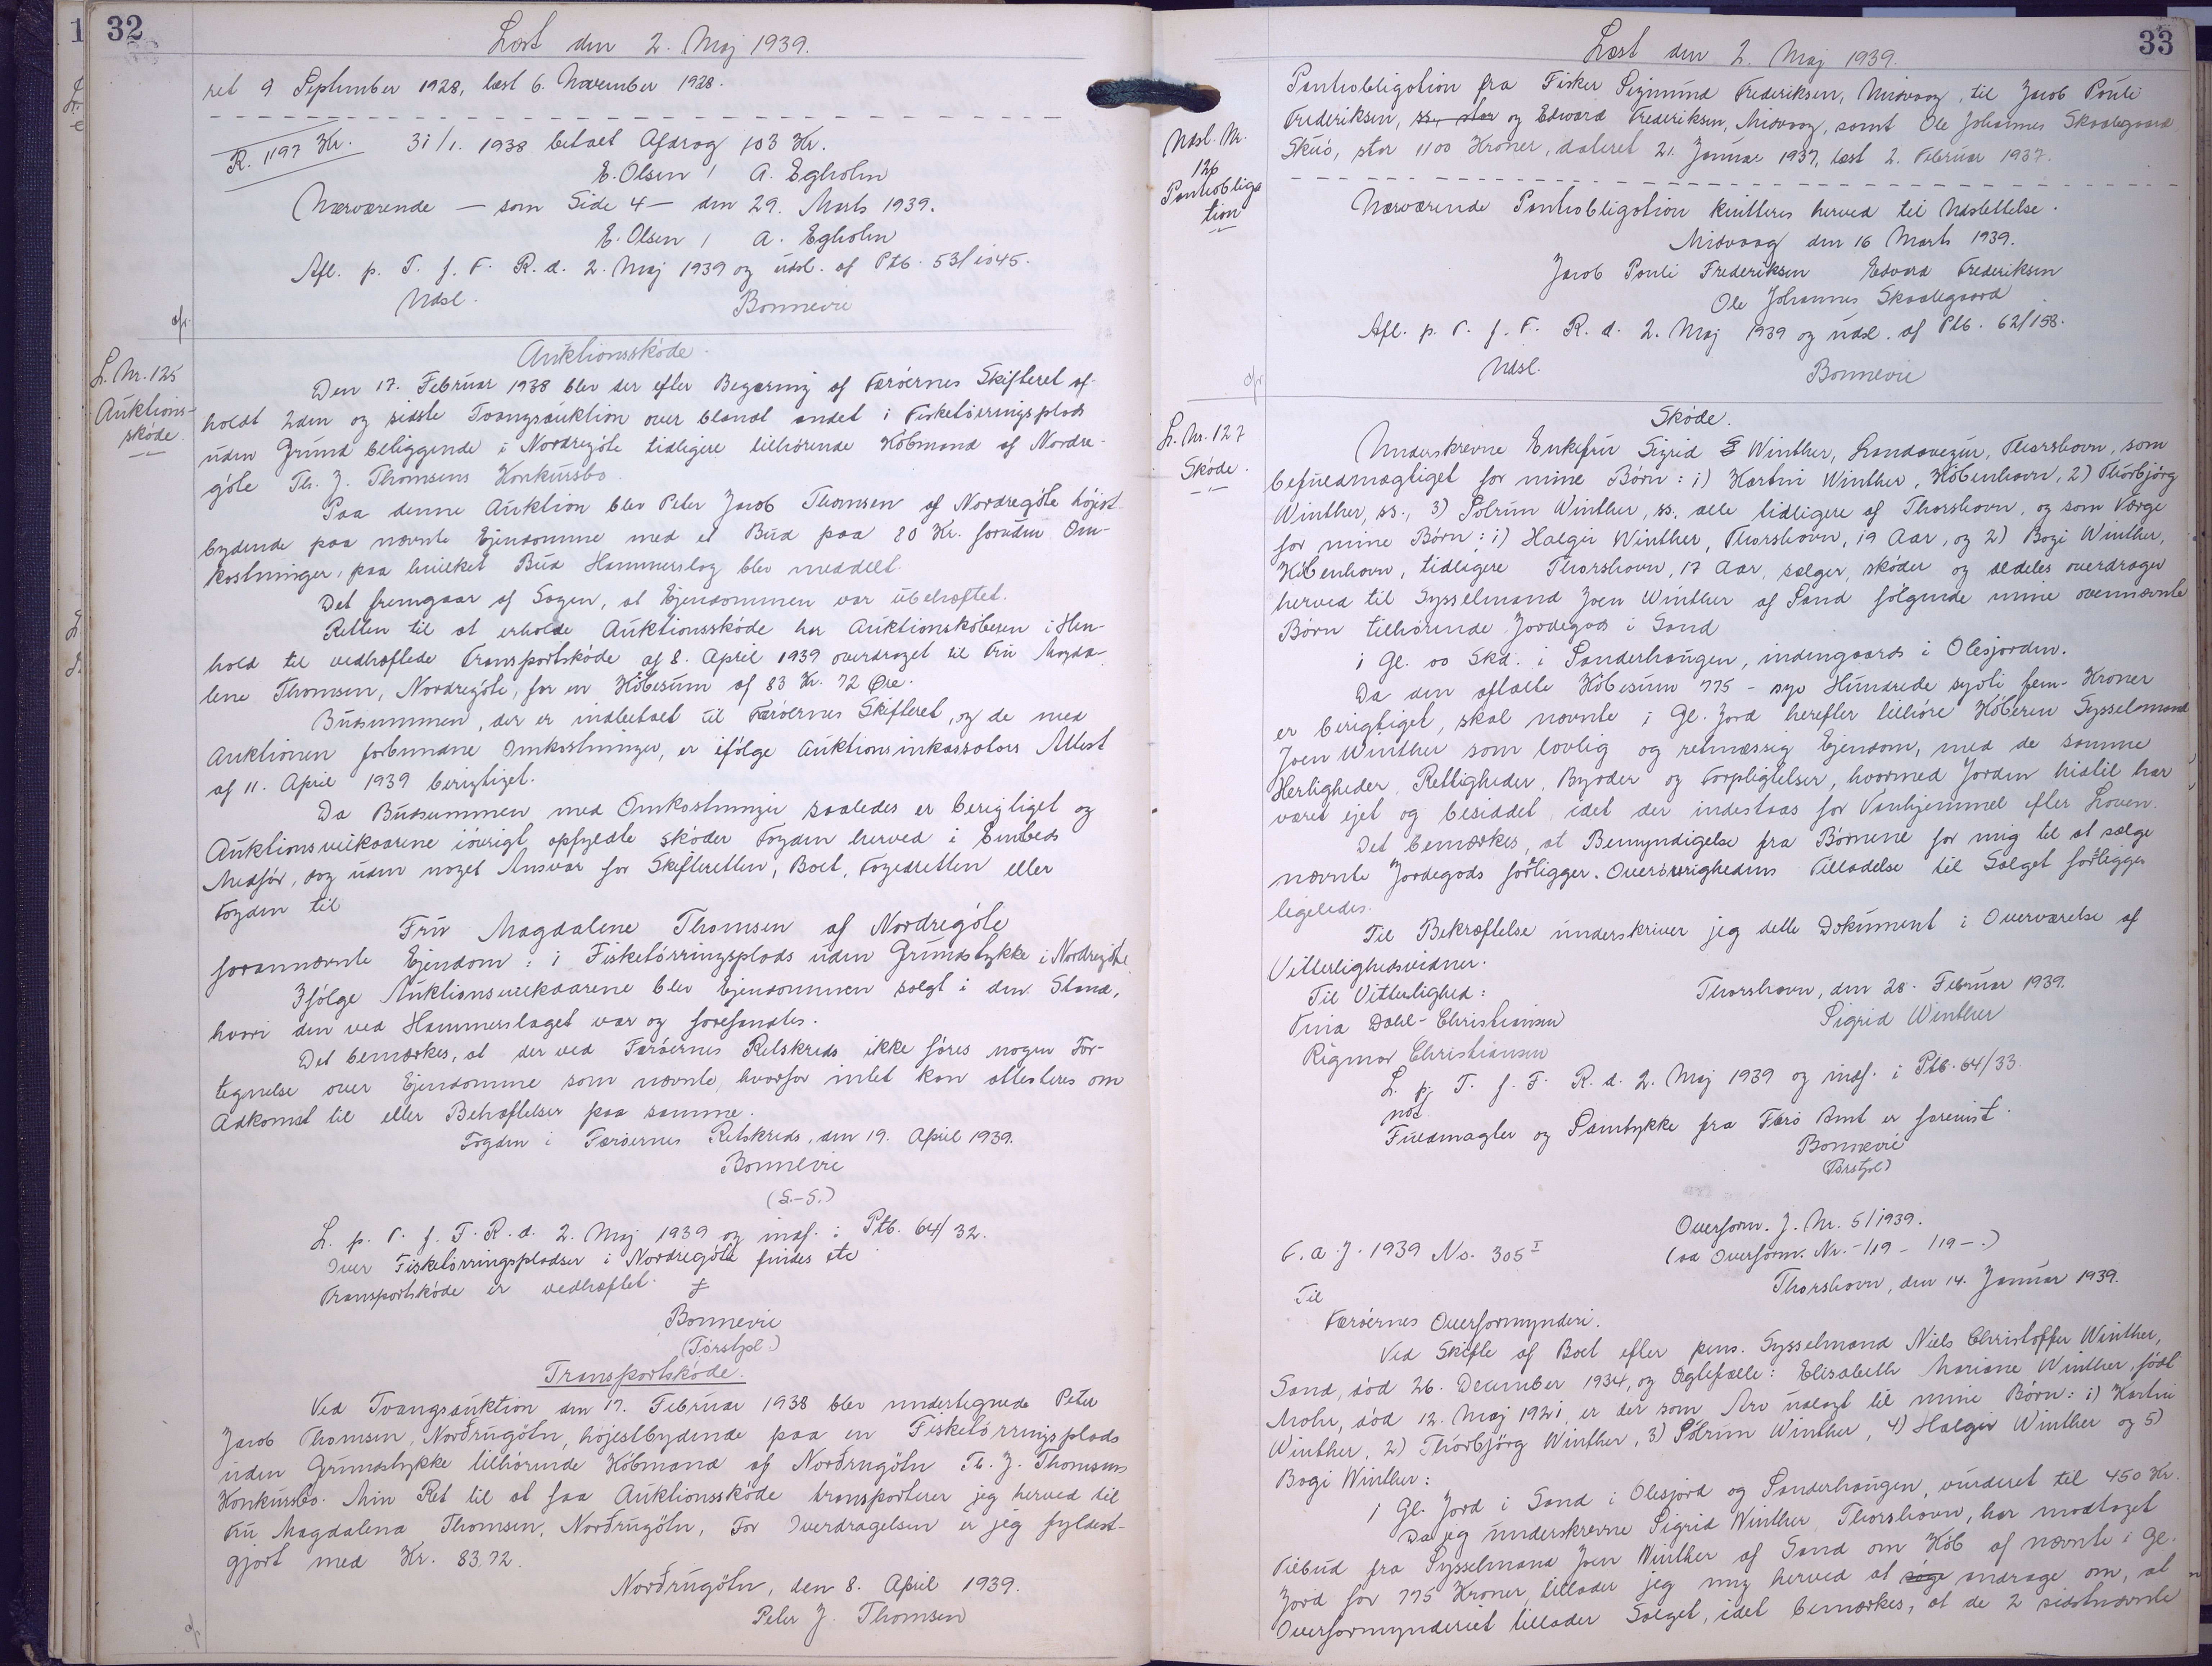 32
Læst den 2. Maj 1939.
ret 9 September 1928, læst 6. November 1928.
R. 1197 Kr. 31/1. 1938 betalt Afdrag 103 Kr.
E. Olsen / A. Egholm
Nærværende — som Side 4 — den 29. Marts 1939.
E. Olsen / A. Egholm
Afl. p. T. f. F. R. d. 2. Maj 1939 og udsl. af Ptb. 53/1045.
Udsl. Bonnevie
L. Nr. 125
Auktions-
skøde.
Auktionsskøde.
Den 17. Februar 1938 blev der efter Begæring af Færøernes Skifteret af-
holdt 2den og sidste Tvangsauktion over blandt andet 1 Fisketørringsplads
uden Grund beliggende i Nordregøte tidligere tilhørende Købmand af Nordre-
gøte Th. J. Thomsens Konkursbo.
Paa denne Auktion blev Peter Jacob Thomsen af Nordregøte højst-
bydende paa nævnte Ejendomme med et Bud paa 80 Kr. foruden Om-
kostninger, paa hvilket Bud Hammerslag blev meddelt.
Det fremgaar af Sagen, at Ejendommen var ubehæftet.
Retten til at erholde Auktionsskøde har Auktionskøberen i Hen-
hold til vedhæftede Transportskøde af 8. April 1939 overdraget til Fru Magda-
lene Thomsen, Nordregøte, for en Købesum af 83 Kr. 72 Øre.
Budsummen, der er indbetalt til Færøernes Skifteret, og de med
Auktionen forbundne Omkostninger, er ifølge Auktionsinkassators Attest
af 11. April 1939 berigtiget.
Da Budsummen med Omkostninger saaledes er berigtiget og
Auktionsvilkaarene iøvrigt opfyldte skøder Fogden herved i Embeds
Medfør, dog uden noget Ansvar for Skifteretten, Boet, Fogedretten eller
Fogden til
Fru Magdalene Thomsen af Nordregøte
forannævnte Ejendom: 1 Fisketørringsplads uden Grundstykke i Nordregøte.
Ifølge Auktionsvilkaarene blev Ejendommen solgt i den Stand,
hvori den ved Hammerslaget var og forefandtes.
Det bemærkes, at der ved Færøernes Retskreds ikke føres nogen For-
tegnelse over Ejendomme som nævnte, hvorfor intet kan attesteres om
Adkomst til eller Behæftelser paa samme.
Fogden i Færøernes Retskreds, den 19. April 1939.
Bonnevie
(L.-S.)
L. p. T. f. F. R. d. 2. Maj 1939 og indf. i Ptb. 64/32.
Over Fisketørringspladser i Nordregøte findes etc
Transportskøde er vedhæftet.
Bonnevie
(Tórstpl.)
Transportskøde.
Ved Tvangsauktion den 17. Februar 1938 blev undertegnede Peter
Jacob Thomsen, Norðrugøtu, højestbydende paa en Fisketørringsplads
uden Grundstykke tilhørende Købmand af Norðrugøtu Th. J. Thomsens
Konkursbo. Min Ret til at faa Auktionsskøde transporterer jeg herved til
Fru Magdalena Thomsen, Norðrugøtu, For Overdragelsen er jeg fyldest-
gjort med Kr. 83,72.
Norðrugøtu, den 8. April 1939.
Peter J. Thomsen
33
Læst den 2. Maj 1939.
Udsl. Nr.
126
Pantobliga
tion
Pantobligation fra Fisker Sigmund Frederiksen, Midvaag, til Jacob Pouli
Frederiksen, ss., stor og Edvard Frederiksen, Midvaag, samt Ole Johannes Skaalegaard,
Skuø, stor 1100 Kroner, dateret 21. Januar 1937, læst 2. Februar 1937.
Nærværende Pantobligation kvitteres herved til Udslettelse.
Midvaag den 16 Marts 1939.
Jacob Pouli Frederiksen Edvard Frederiksen
Ole Johannes Skaalegaard
Afl. p. T. f. F. R. d. 2. Maj 1939 og udsl. af Ptb. 62/158.
Udsl. Bonnevie
L. Nr. 127
Skøde.
Skøde.
Underskrevne Enkefru Sigrid Winther, Landavegur, Thorshavn, som
befuldmægtiget for mine Børn: 1) Kartni Winther, København, 2) Thorbjørg
Winther, ss., 3) Sólrun Winther, ss., alle tidligere af Thorshavn, og som Værge
for mine Børn: 1) Halgir Winther, Thorshavn, 19 Aar, og 2) Bogi Winther,
København, tidligere Thorshavn, 17 Aar, sælger, skøder og aldeles overdrager
herved til Sysselmand Joen Winther af Sand følgende mine ovennævnte
Børn tilhørende Jordegods i Sand
1 Gl. 00 Skd. i Sanderhaugen, indengaards i Olesjorden.
Da den aftalte Købesum 775 - syv Hundrede syvti fem - Kroner
er berigtiget, skal nævnte 1 Gl. Jord herefter tilhøre Køberen Sysselmand
Joen Winther som lovlig og retmæssig Ejendom, med de samme
Herligheder, Rettigheder, Byrder og Forpligtelser, hvormed Jorden hidtil har
været ejet og besiddet idet der indestaas for Vanhjemmel efter Loven.
Det bemærkes, at Bemyndigelse fra Børnene for mig til at sælge
nævnte Jordegods forligger. Overøvrighedens Tilladelse til Salget forligger
ligeledes.
Til Bekræftelse underskriver jeg dette Dokument i Overværelse af
Vitterlighedsvidner.
Thorshavn, den 28. Februar 1939.
Til Vitterlighed:
Sigrid Winther
Tina Dahl-Christiansen
Rigmor Christiansen
L. p. T. f. F. R. d. 2. Maj 1939 og indf. i Ptb. 64/33.
not.
Fuldmagter og Samtykke fra Færø Amt er forevist.
Bonnevie
(Tórstpl)
Overform. J. Nr. 5/1939.
F. a. J. 1939 No. 305 I
(aa Overform. Nr. -119 - 119-.)
Thorshavn, den 14. Januar 1939.
Til
Færøernes Overformynderi.
Ved Skifte af Boet efter pens. Sysselmand Niels Christoffer Winther,
Sand, død 26. December 1934, og Ægtefælle: Elisabeth Mariane Winther, født
Mohr, død 12. Maj 1921, er der som Arv udlagt til mine Børn: 1) Kartni
Winther, 2) Thórbjörg Winther, 3) Sólrun Winther, 4) Halgir Winther og 5)
Bogi Winther:
1 Gl. Jord i Sand i Olesjord og Sanderhaugen, vurderet til 450 Kr.
Da jeg underskrevne Sigrid Winther, Thorshavn, har modtaget
Tilbud fra Sysselmand Joen Winther af Sand om Køb af nævnte 1 Gl.
Jord for 775 Kroner, tillader jeg mig herved at søge andrage om, at
Overformynderiet tillader Salget, idet bemærkes, at de 2 sidstnævnte